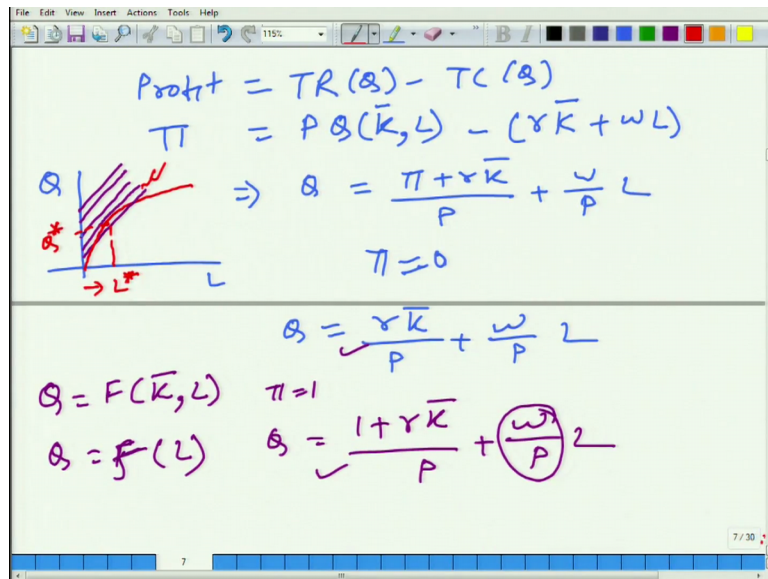 File Edit View Insert Actions Tools Help
115%
B I
Profit = TR(Q) - TC(Q)
π = PQ(K̄, L) - (rK̄ + wL)
Q
Q*
→ L*
L
⇒ Q = (π + rK̄)/P + w/P L
π = 0
Q = rK̄/P + w/P L
Q = F(K̄, L) π=1
Q = f(L) Q = (1 + rK̄)/P + w/P L
7 / 30
7